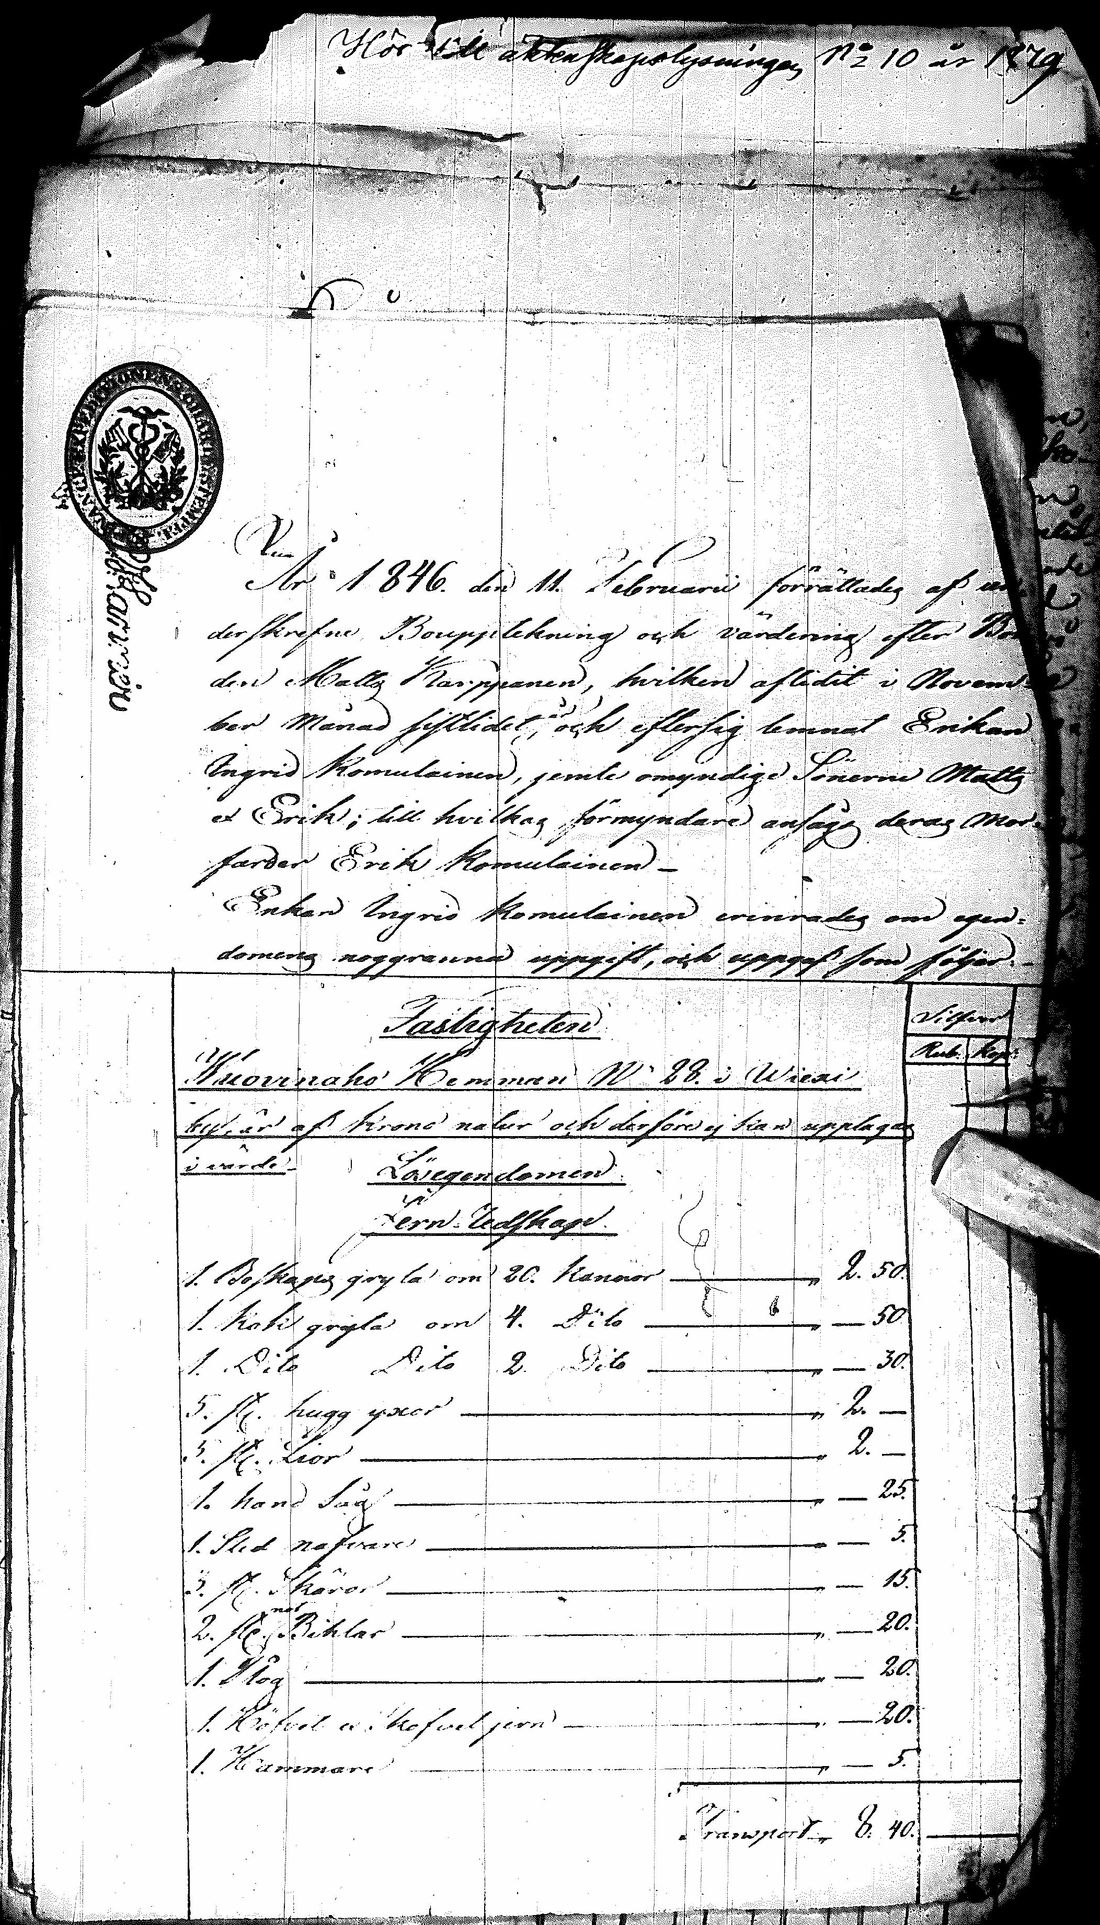 Hör till äktenskapslysningen No 10 år 1879
FINANCE EXPEDITIONEN CHARTÆ STEMPEL
År 1846. den 11. Februarii förrättades af un
derskrefne Boupptekning och värdering efter Bon
den Matts Karppanen, hvilken aflidit i Novem-
ber Månad sistlidet, och eftersig lemnat Enkan
Ingrid Komulainen, jemte omyndige Sönerne Matts
et Erik; till hvilkas förmyndare ansågs deras Mor-
farder Erik Komulainen –
Enkan Ingrid Komulainen erinrades om egen-
domens noggranna uppgift, och uppgaf som följer: –
Fastigheten Silfver
Rub. Kop:
Kuovinaho Hemman No 28. i Wiexi
by, är af Krono natur och derföre ej kan upptagas
i värde –
Lösegendomen
Jern-Redskap.
1. Boskaps gryta om 20. Kannor „ 2. 50.
1. Kok gryta om 4. Dito „ — 50.
1. Dito Dito 2. Dito „ — 30.
5. st. hugg yxor „ 2. —
5. st. Lior „ 2. —
1. hand Såg „ — 25.
1. Sled nafvare „ — 5.
3. st. Skäror „ — 15.
2. st. not Bihlar „ — 20.
1. Plog „ — 20.
1. Höfvel et skafvel jern „ — 20.
1. Hammare „ — 5.
Transport „ 8. 40.